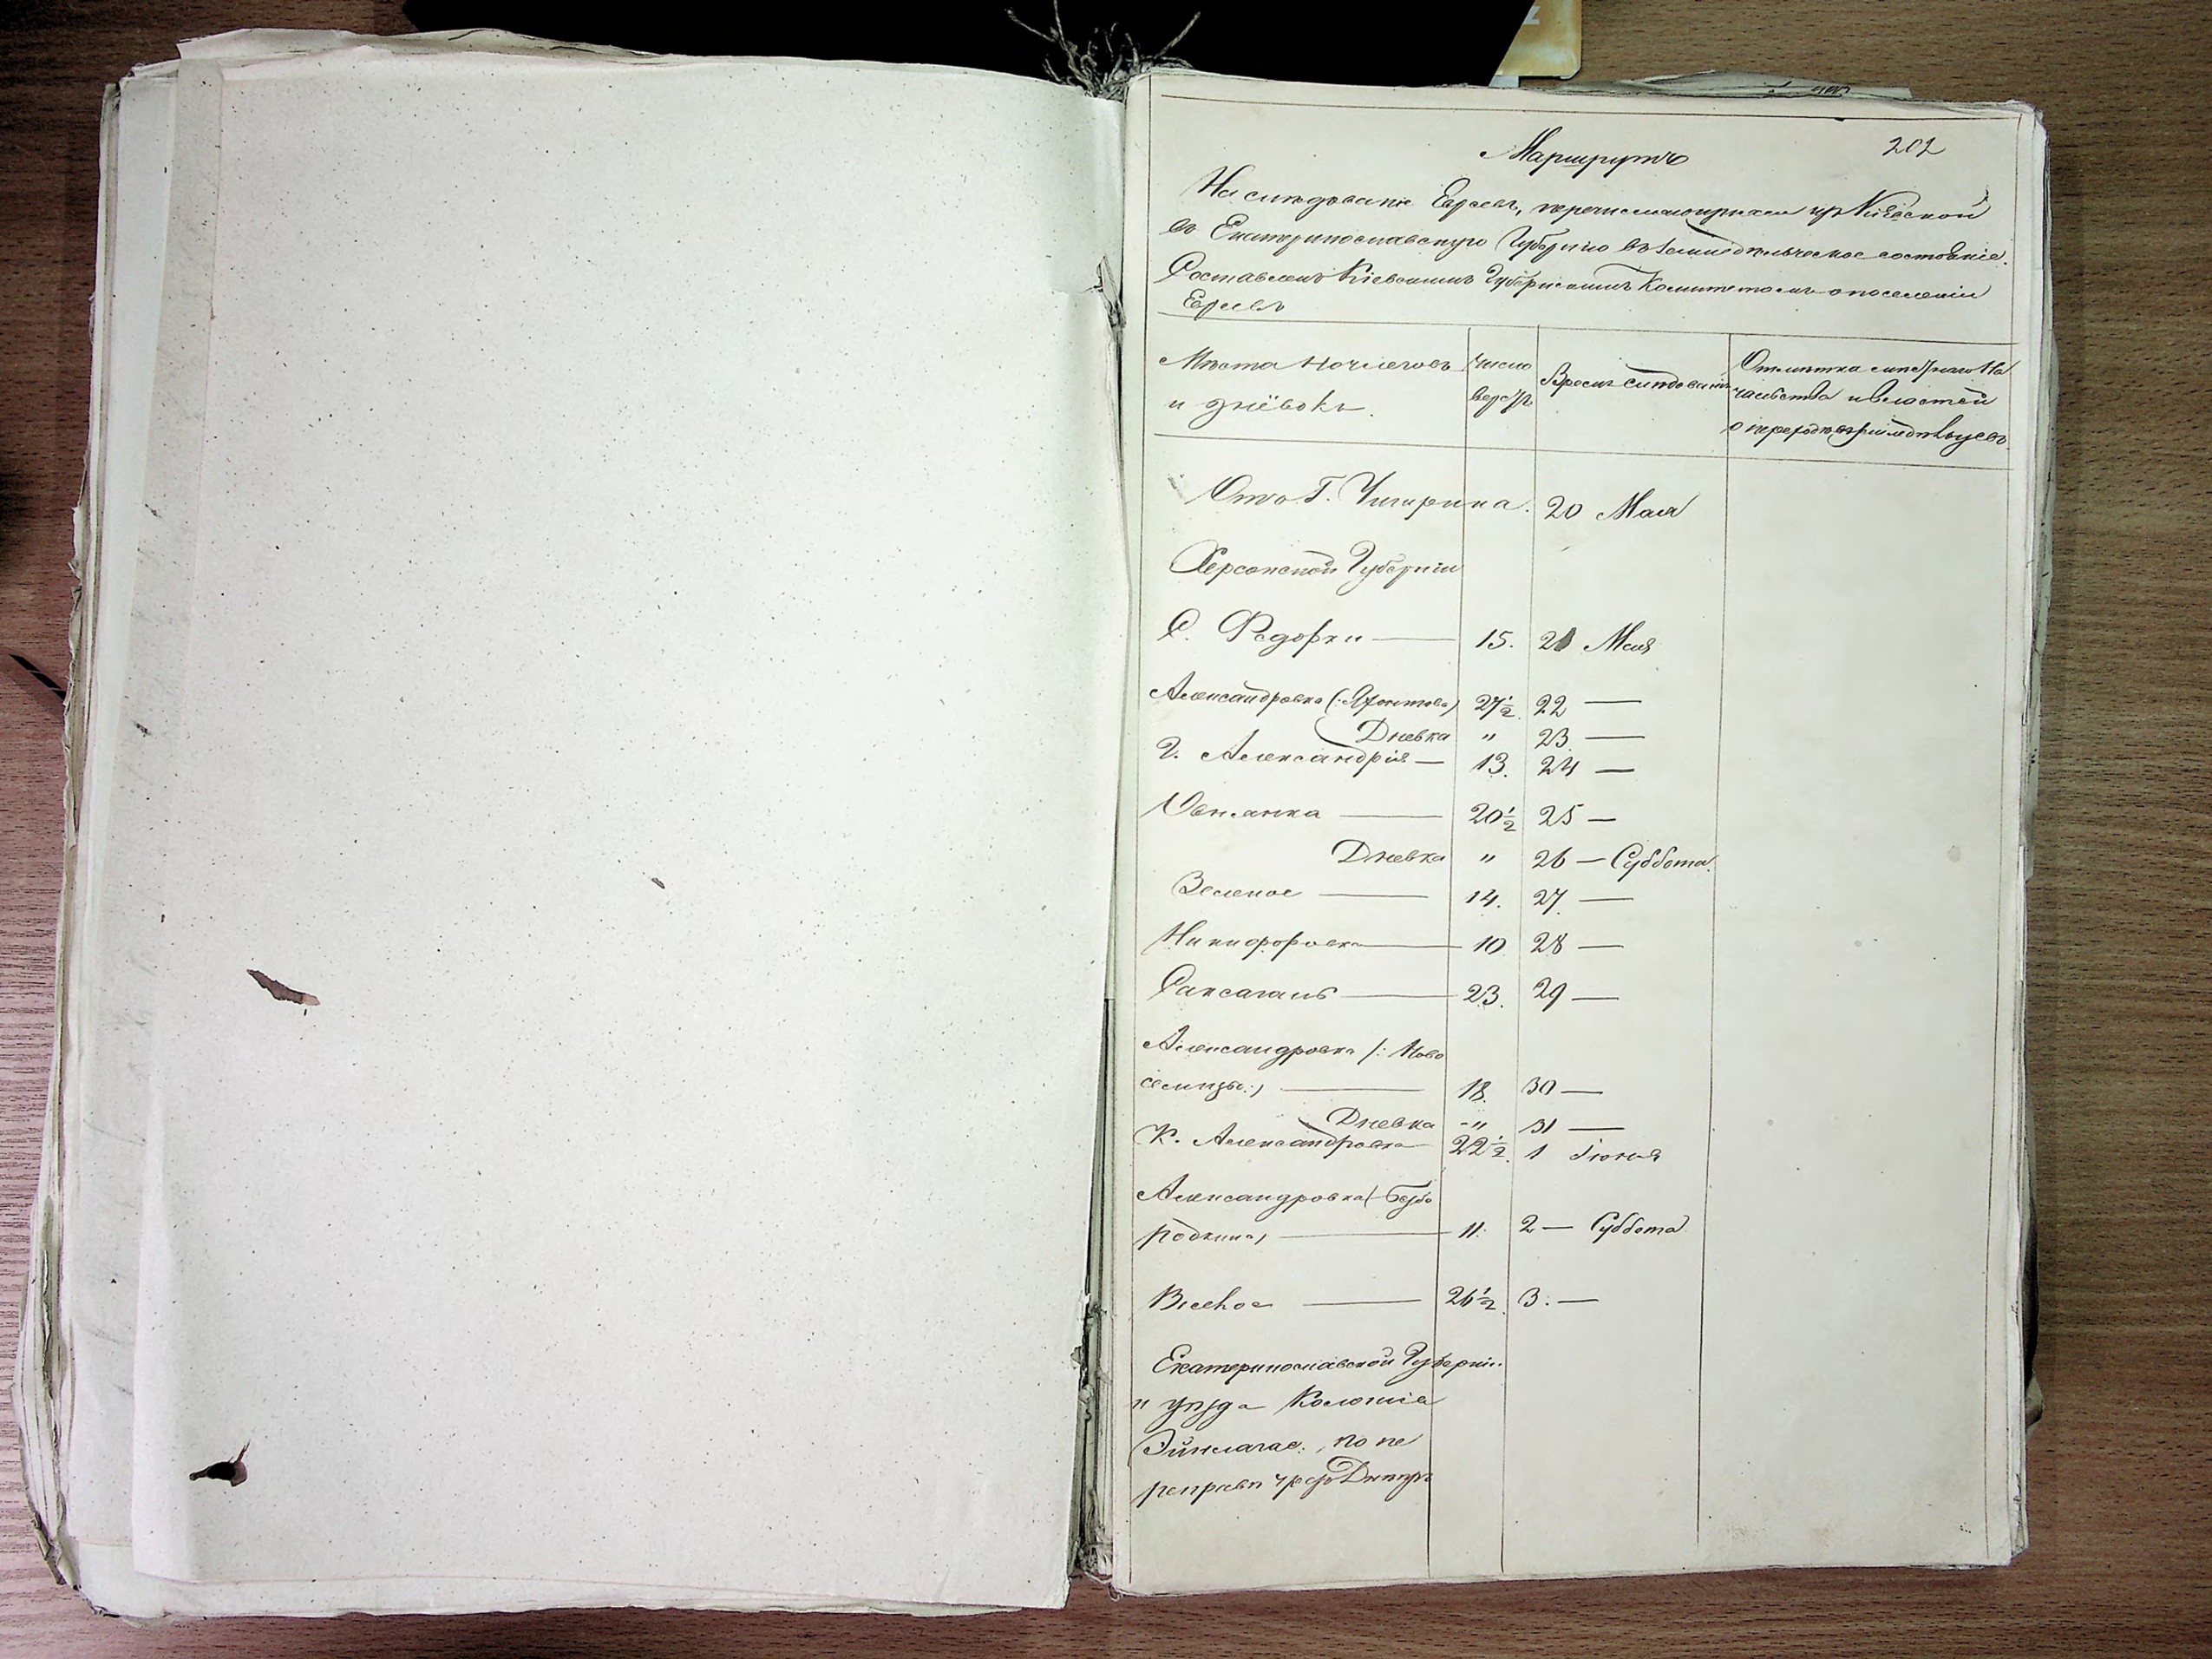 202
Маршрутъ
На слѣдованіе Евреевъ, перечисляющихся изъ Кіевской
въ Екатеринославскую Губернію въ земледѣльческое состояніе.
Составленъ Кіевскимъ Губернскимъ Комитетомъ о поселеніи
Евреевъ
Мѣста ночлеговъ и днёвокъ.
Число верстъ
Время слѣдованія
Отмѣтка сельскаго На
чальства и властей
о переѣздѣ земледѣльцевъ
Отъ Г. Чигирина. 20 Мая
Херсонской Губерніи
С. Федорки — 15. 21 Мая
Александровка 27½ 22 —
Дневка " 23 —
Г. Александрія — 13. 24 —
Овнянка — 20½ 25 —
Дневка " 26 — Суббота.
Зеленое — 14. 27. —
Никифоровка — 10 28 —
Саксагань — 23. 29 —
Александровка (: Ново
селицы :) — 18. 30 —
Дневка " 31 —
К. Александровка — 22½. 1 Іюня
Александровка (: Безбо
родкина) — 11. 2 — Суббота
Вісекое — 26½. 3. —
Екатеринославской Губерніи
и уѣзда Колонія
Эйнлаге:, по пе
реправѣ чрезъ Днѣпръ